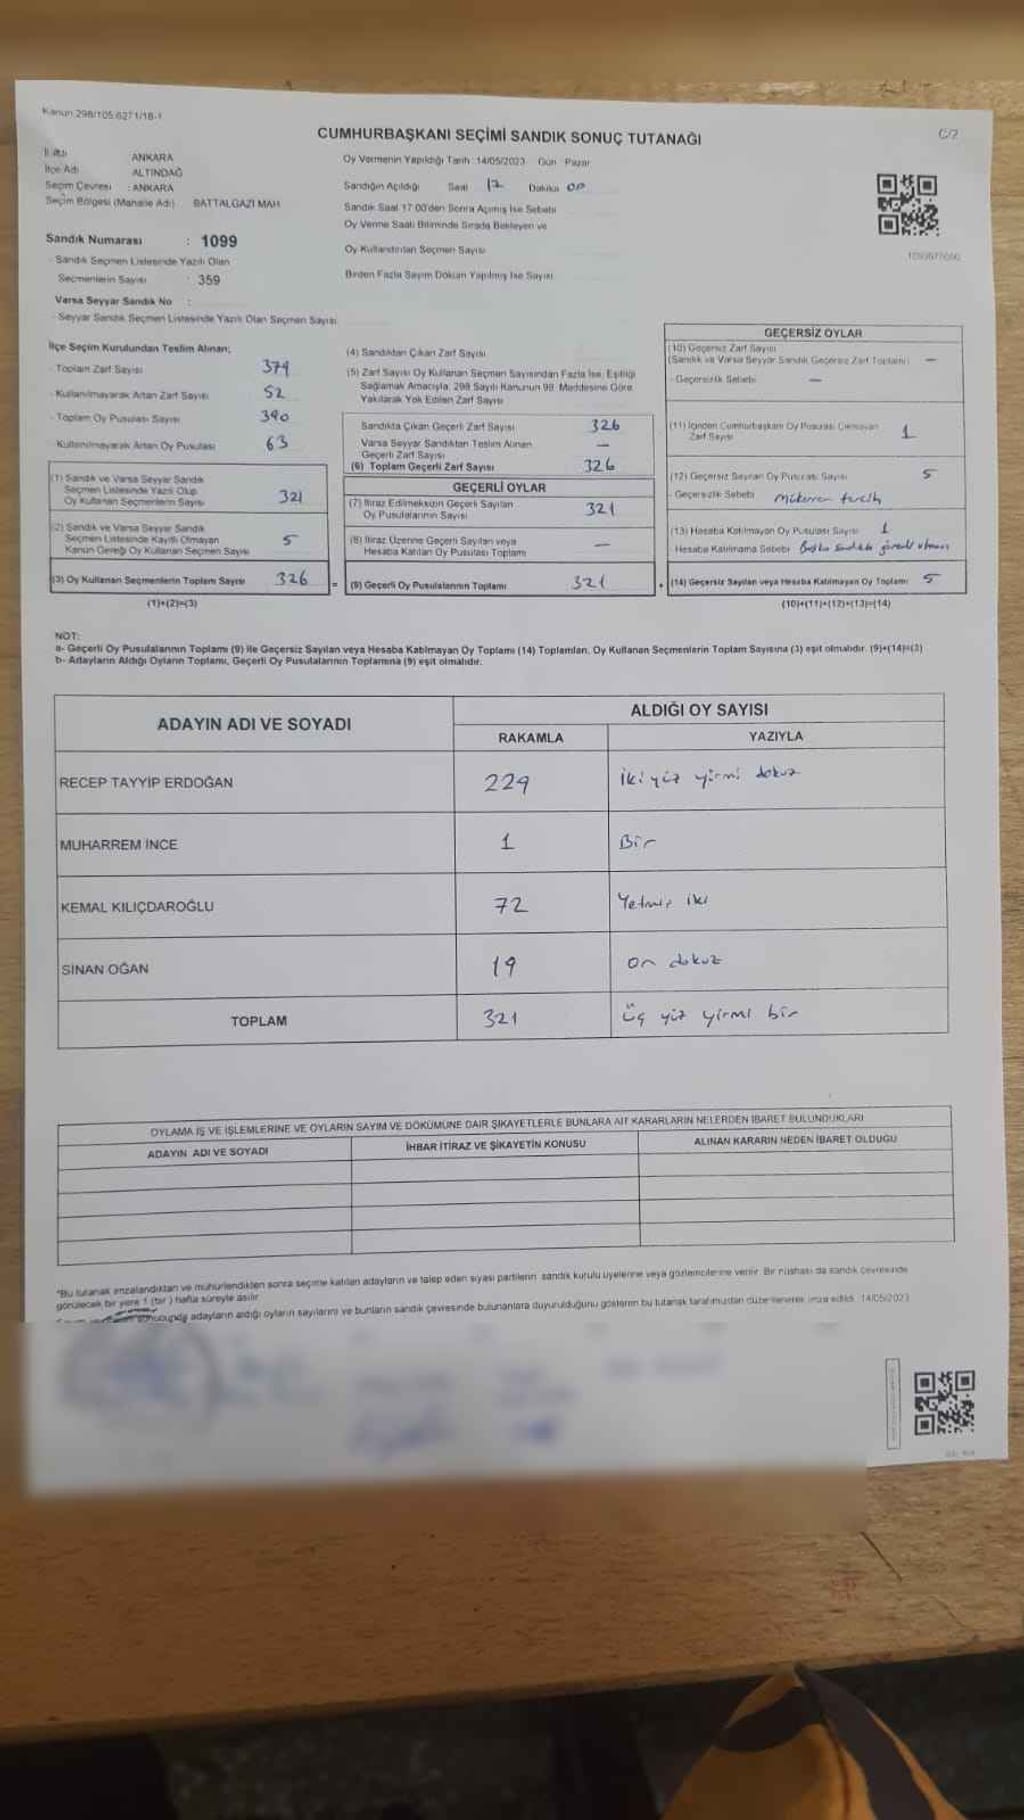 Kanun 298/105.6271/18-1
C/2
CUMHURBAŞKANI SEÇİMİ SANDIK SONUÇ TUTANAĞI
İl Adı : ANKARA
İlçe Adı : ALTINDAĞ
Seçim Çevresi : ANKARA
Seçim Bölgesi (Mahalle Adı) : BATTALGAZI MAH.
Sandık Numarası : 1099
- Sandık Seçmen Listesinde Yazılı Olan
Seçmenlerin Sayısı : 359
Varsa Seyyar Sandık No :
- Seyyar Sandık Seçmen Listesinde Yazılı Olan Seçmen Sayısı
Oy Vermenin Yapıldığı Tarih : 14/05/2023 Gün : Pazar
Sandığın Açıldığı Saat 17 Dakika 00
Sandık Saat 17:00'den Sonra Açılmış İse Sebebi
Oy Verme Saati Bitiminde Sırada Bekleyen ve
Oy Kullandırılan Seçmen Sayısı
Birden Fazla Sayım Döküm Yapılmış İse Sayısı
İlçe Seçim Kurulundan Teslim Alınan;
- Toplam Zarf Sayısı 374
- Kullanılmayarak Artan Zarf Sayısı 52
- Toplam Oy Pusulası Sayısı 390
- Kullanılmayarak Artan Oy Pusulası 63
(1) Sandık ve Varsa Seyyar Sandık
Seçmen Listesinde Yazılı Olup
Oy Kullanan Seçmenlerin Sayısı 321
(2) Sandık ve Varsa Seyyar Sandık
Seçmen Listesinde Kayıtlı Olmayan
Kanun Gereği Oy Kullanan Seçmen Sayısı 5
(3) Oy Kullanan Seçmenlerin Toplam Sayısı 326
(1)+(2)=(3)
(4) Sandıktan Çıkan Zarf Sayısı
(5) Zarf Sayısı Oy Kullanan Seçmen Sayısından Fazla İse, Eşitliği
Sağlamak Amacıyla, 298 Sayılı Kanunun 98. Maddesine Göre
Yakılarak Yok Edilen Zarf Sayısı
Sandıkta Çıkan Geçerli Zarf Sayısı 326
Varsa Seyyar Sandıktan Teslim Alınan
Geçerli Zarf Sayısı —
(6) Toplam Geçerli Zarf Sayısı 326
GEÇERLİ OYLAR
(7) İtiraz Edilmeksizin Geçerli Sayılan
Oy Pusulalarının Sayısı 321
(8) İtiraz Üzerine Geçerli Sayılan veya
Hesaba Katılan Oy Pusulası Toplamı —
= (9) Geçerli Oy Pusulalarının Toplamı 321
GEÇERSİZ OYLAR
(10) Geçersiz Zarf Sayısı
(Sandık ve Varsa Seyyar Sandık Geçersiz Zarf Toplamı) —
- Geçersizlik Sebebi —
(11) İçinden Cumhurbaşkanı Oy Pusulası Çıkmayan
Zarf Sayısı 1
(12) Geçersiz Sayılan Oy Pusulası Sayısı 5
- Geçersizlik Sebebi mükerrer tercih
(13) Hesaba Katılmayan Oy Pusulası Sayısı 1
Hesaba Katılmama Sebebi Başka sandıkta görevli olması
+ (14) Geçersiz Sayılan veya Hesaba Katılmayan Oy Toplamı 5
(10)+(11)+(12)+(13)=(14)
NOT:
a- Geçerli Oy Pusulalarının Toplamı (9) ile Geçersiz Sayılan veya Hesaba Katılmayan Oy Toplamı (14) Toplamları, Oy Kullanan Seçmenlerin Toplam Sayısına (3) eşit olmalıdır. (9)+(14)=(3)
b- Adayların Aldığı Oyların Toplamı, Geçerli Oy Pusulalarının Toplamına (9) eşit olmalıdır.
ADAYIN ADI VE SOYADI
ALDIĞI OY SAYISI
RAKAMLA YAZIYLA
RECEP TAYYİP ERDOĞAN 229 iki yüz yirmi dokuz
MUHARREM İNCE 1 Bir
KEMAL KILIÇDAROĞLU 72 Yetmiş iki
SİNAN OĞAN 19 on dokuz
TOPLAM 321 üç yüz yirmi bir
OYLAMA İŞ VE İŞLEMLERİNE VE OYLARIN SAYIM VE DÖKÜMÜNE DAİR ŞİKAYETLERLE BUNLARA AİT KARARLARIN NELERDEN İBARET BULUNDUKLARI
ADAYIN ADI VE SOYADI İHBAR İTİRAZ VE ŞİKAYETİN KONUSU ALINAN KARARIN NEDEN İBARET OLDUĞU
"Bu tutanak imzalandıktan ve mühürlendikten sonra seçime katılan adayların ve talep eden siyasi partilerin sandık kurulu üyelerine veya gözlemcilerine verilir. Bir nüshası da sandık çevresinde
görülecek bir yere 1 (bir) hafta süreyle asılır.
sonucunda adayların aldığı oyların sayılarını ve bunların sandık çevresinde bulunanlara duyurulduğunu gösteren bu tutanak tarafımızdan düzenlenerek imza edildi. 14/05/2023